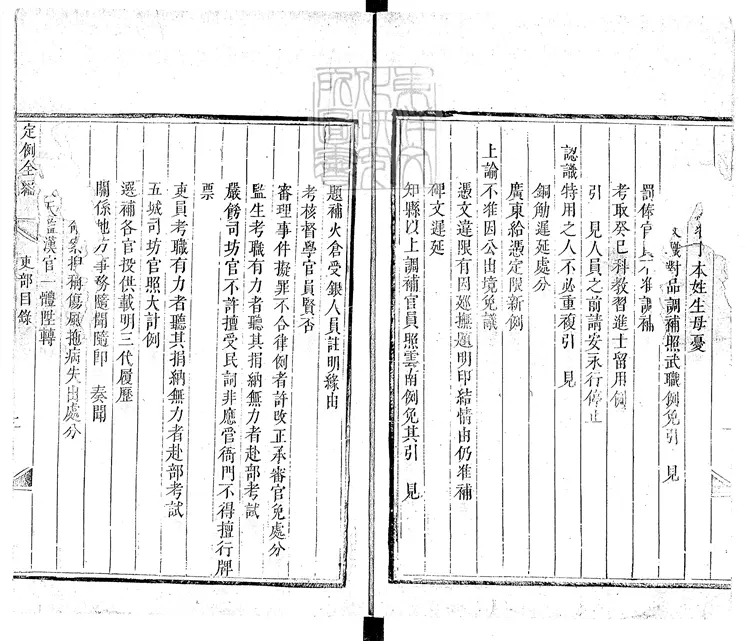 本姓生母憂
對品調補照武職例免引 見
罰俸官員不准調補
考取癸巳科教習進士留用例
引 見人員之前請安永行停止
認識特用之人不必重複引 見
銅觔遲延處分
廣東給憑定限新例
上諭不准因公出境免議
憑文違限有因廵撫題明印結情由仍准補
碑文遲延
知縣以上調補官員照雲南例免其引 見
題補火倉受銀人員註明緣由
考核督學官員賢否
審理事件擬罪不合律例者許改正承審官免處分
監生考職有力者聽其捐納無力者赴部考試
嚴飭司坊官不許擅受民詞非應官衙門不得擅行牌
票
吏員考職有力者聽其捐納無力者赴部考試
五城司坊官照大計例
選補各官投供載明三代履歷
關係地方事務隨聞隨卽 奏聞
稱傷風拖病失出處分
天監漢官一體陞轉
定例全編 吏部目錄